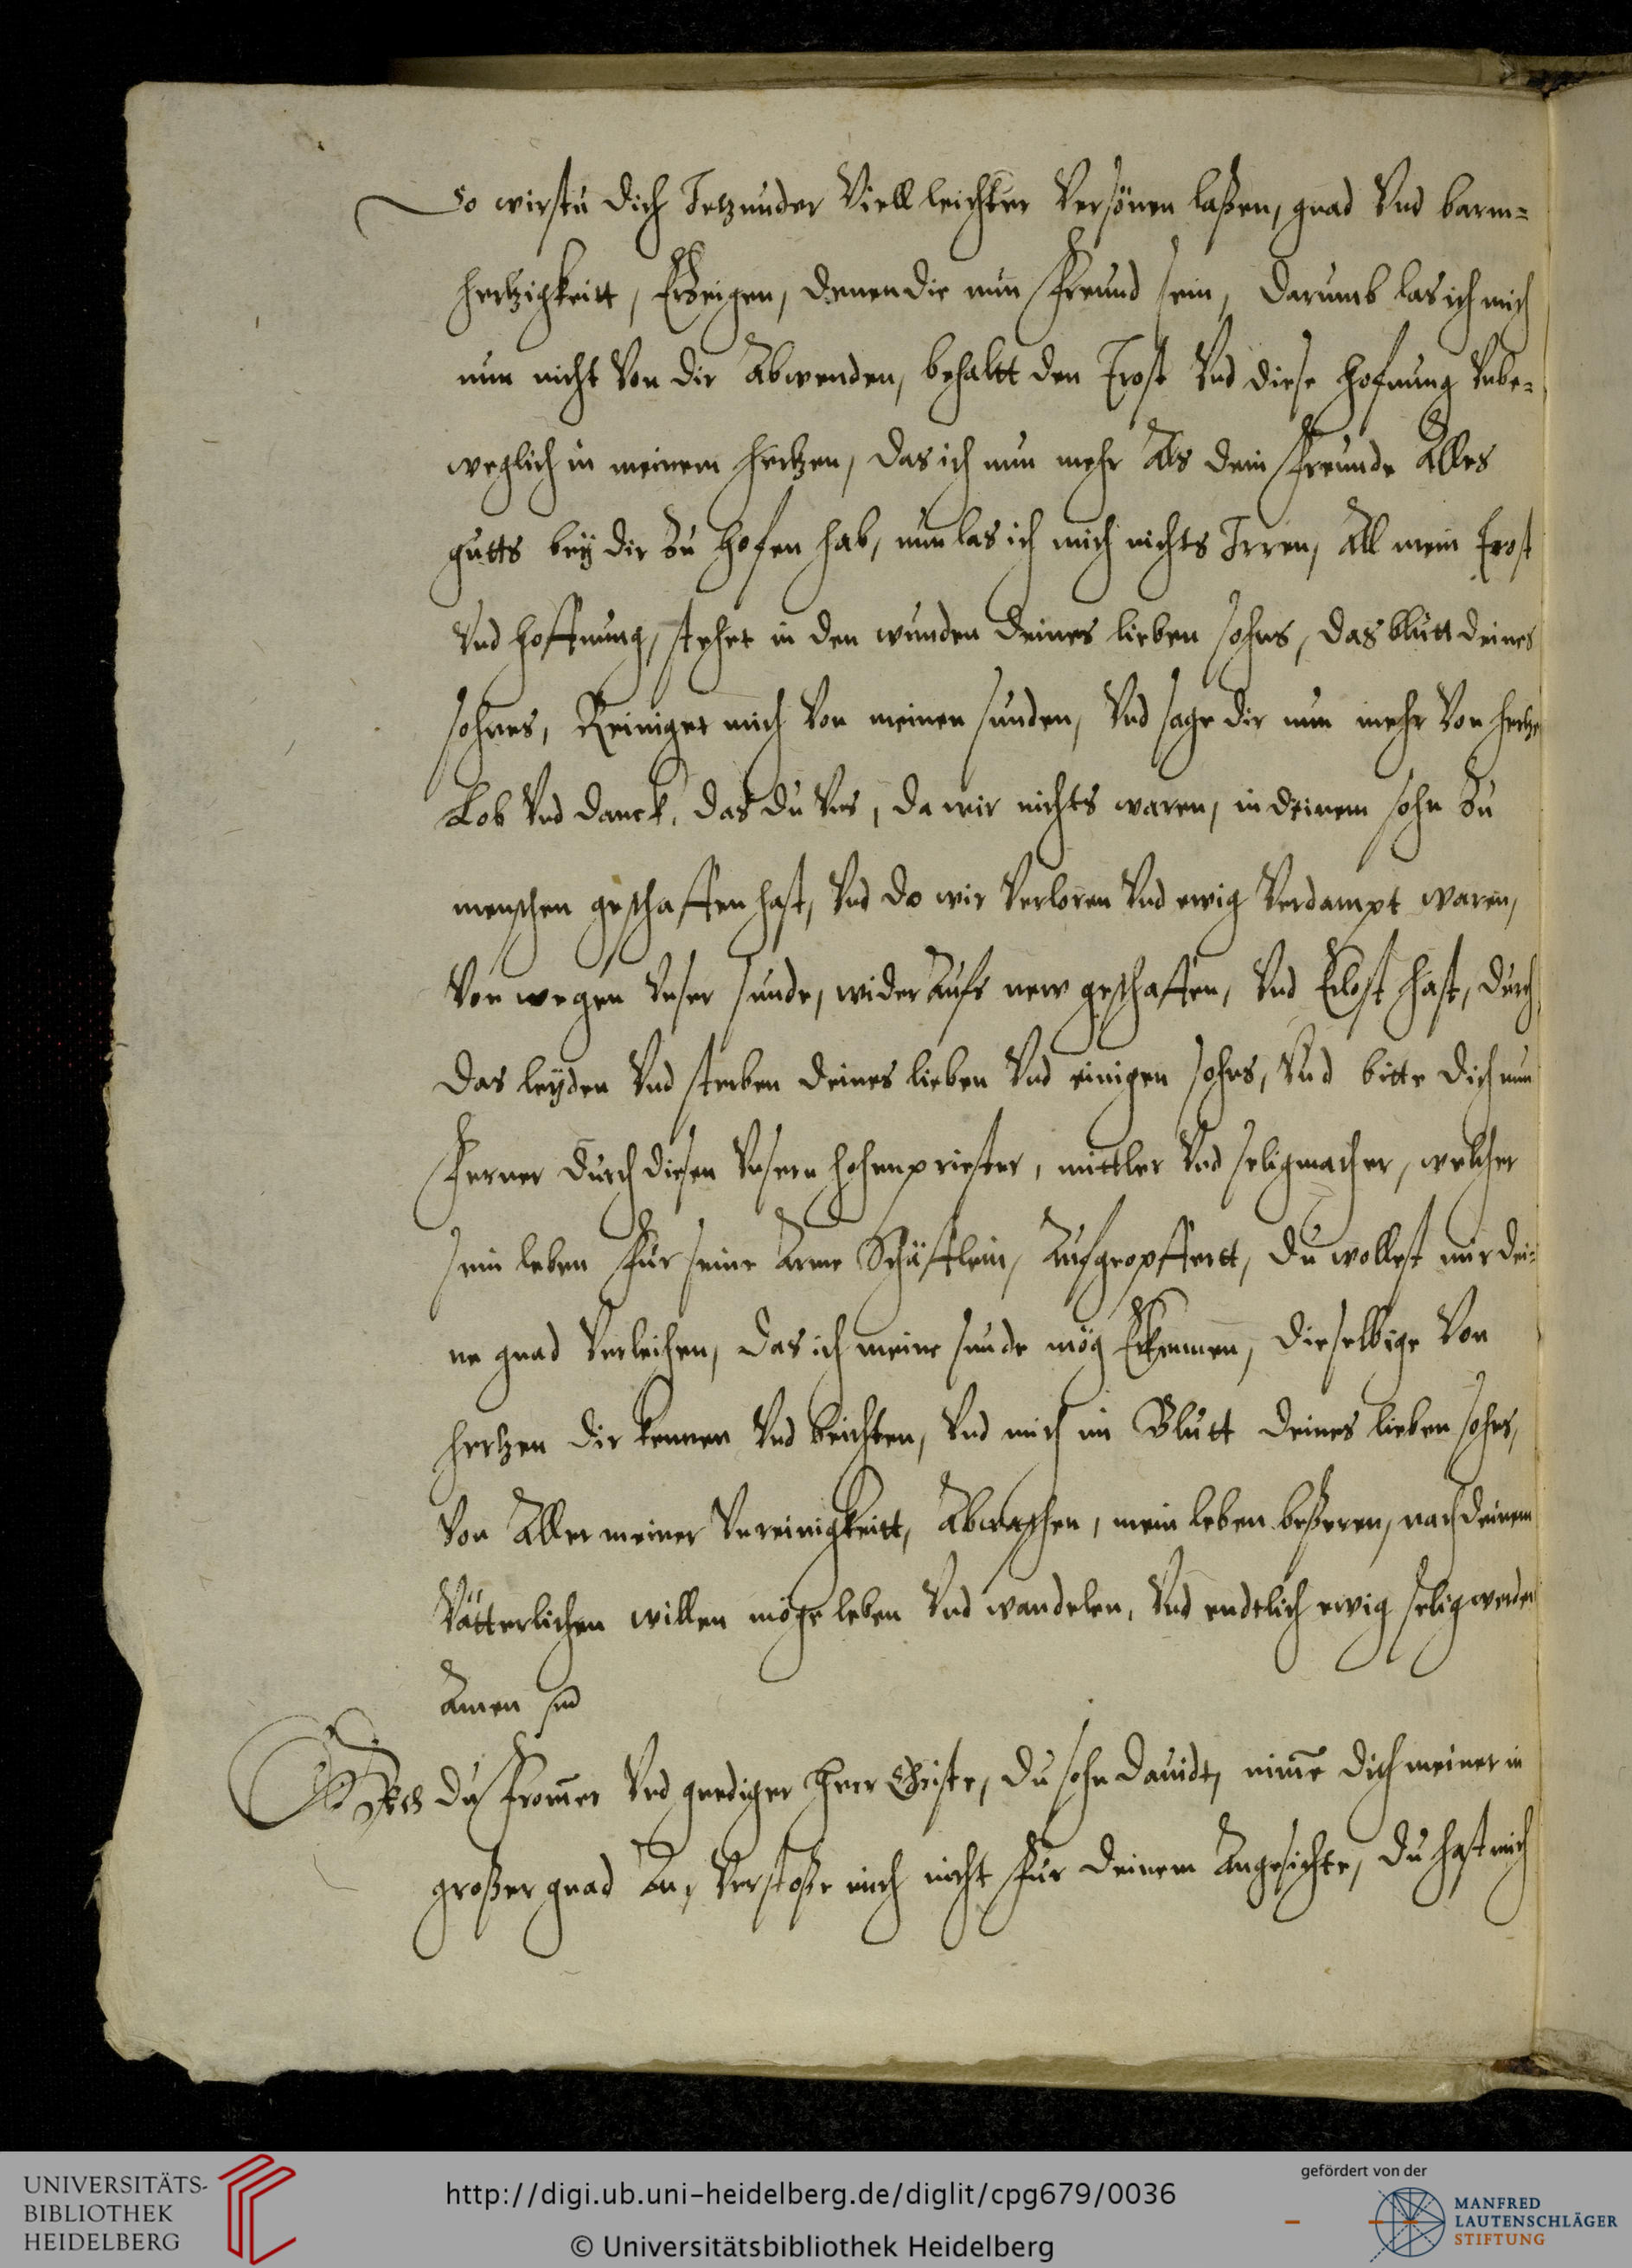 So wirstu dich Jetzunder Viell leichter Versönen laßen, gnad Vnd barm=
hertzigkeitt, Erzeigen, denen die nun freund sein, darumb las ich mich
nun nicht Von dir Abwenden, behaltt den Trost Vnd diese Hofnung Vnbe=
weglich in meinem hertzen, das ich nun mehr Als dein freunde Alles
gutts bey dir zu Hofen hab, nun las ich mich nichts Irren, All mein Trost
Vnd Hoffnung, stehet in den wunden deines lieben sohns, das blutt deines
sohnes, Reiniget mich Von meinen sunden, Vnd sage dir nun mehr Von hertze
Lob Vnd danck, das du Vns, da wir nichts waren, in deinem sohn zu
menschen geschaffen hast, Vnd do wir Verloren Vnd ewig Verdampt waren,
Von wegen Vnser sunde, wider Aufs new geschaffen, Vnd Erlost hast, durch
das leyden Vnd sterben deines lieben Vnd einigen sohns, Vnd bitte dich nun
ferner durch diesen Vnsern hohenpriester, mittler Vnd seligmacher, welcher
sein leben fur seine Arme Schäfflein, Aufgeopffertt, du wollest mir dei=
ne gnad Verleihen, das ich meine sunde mög Erkennen, dieselbige Von
hertzen dir kennen Vnd beichten, Vnd mich im Blutt deines lieben sohns,
Von Aller meiner Vnreinigkeitt, Abwaschen, mein leben beßeren, nach deinem
Vätterlichen willen möge leben Vnd wandelen, Vnd endtlich ewig selig werden
Amen
Ach du fromer Vnd gnediger Herr Christe, du sohn Dauidt, nime dich meiner in
großer gnad An, Verstoße mich nicht fur deinem Angesichte, du hast mich
UNIVERSITÄTS-
BIBLIOTHEK
HEIDELBERG
http://digi.ub.uni-heidelberg.de/diglit/cpg679/0036
© Universitätsbibliothek Heidelberg
gefördert von der
MANFRED
LAUTENSCHLÄGER
STIFTUNG